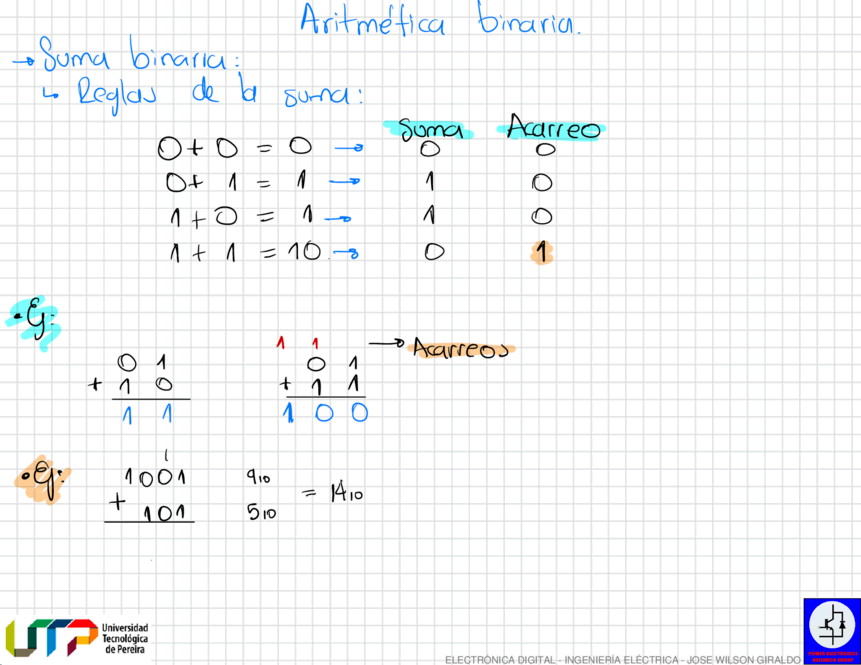 Aritmética binaria.
→ Suma binaria:
↳ Reglas de la suma:
Suma Acarreo
0 + 0 = 0 → 0 0
0 + 1 = 1 → 1 0
1 + 0 = 1 → 1 0
1 + 1 = 10 → 0 1
• Ej:
1 1 → Acarreos
0 1 0 1
+ 1 0 + 1 1
1 1 1 0 0
• Ej:
1
1001 9₁₀
+ 101 5₁₀ = 14₁₀
UTP Universidad
Tecnológica
de Pereira
ELECTRÓNICA DIGITAL - INGENIERÍA ELÉCTRICA - JOSE WILSON GIRALDO